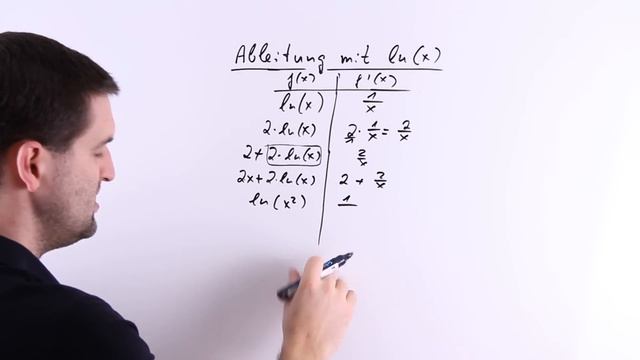 Ableitung mit ln(x)
f(x) f'(x)
ln(x) 1/x
2·ln(x) 2·1/x = 2/x
2+ 2·ln(x) 2/x
2x+2·ln(x) 2 + 2/x
ln(x²) 1